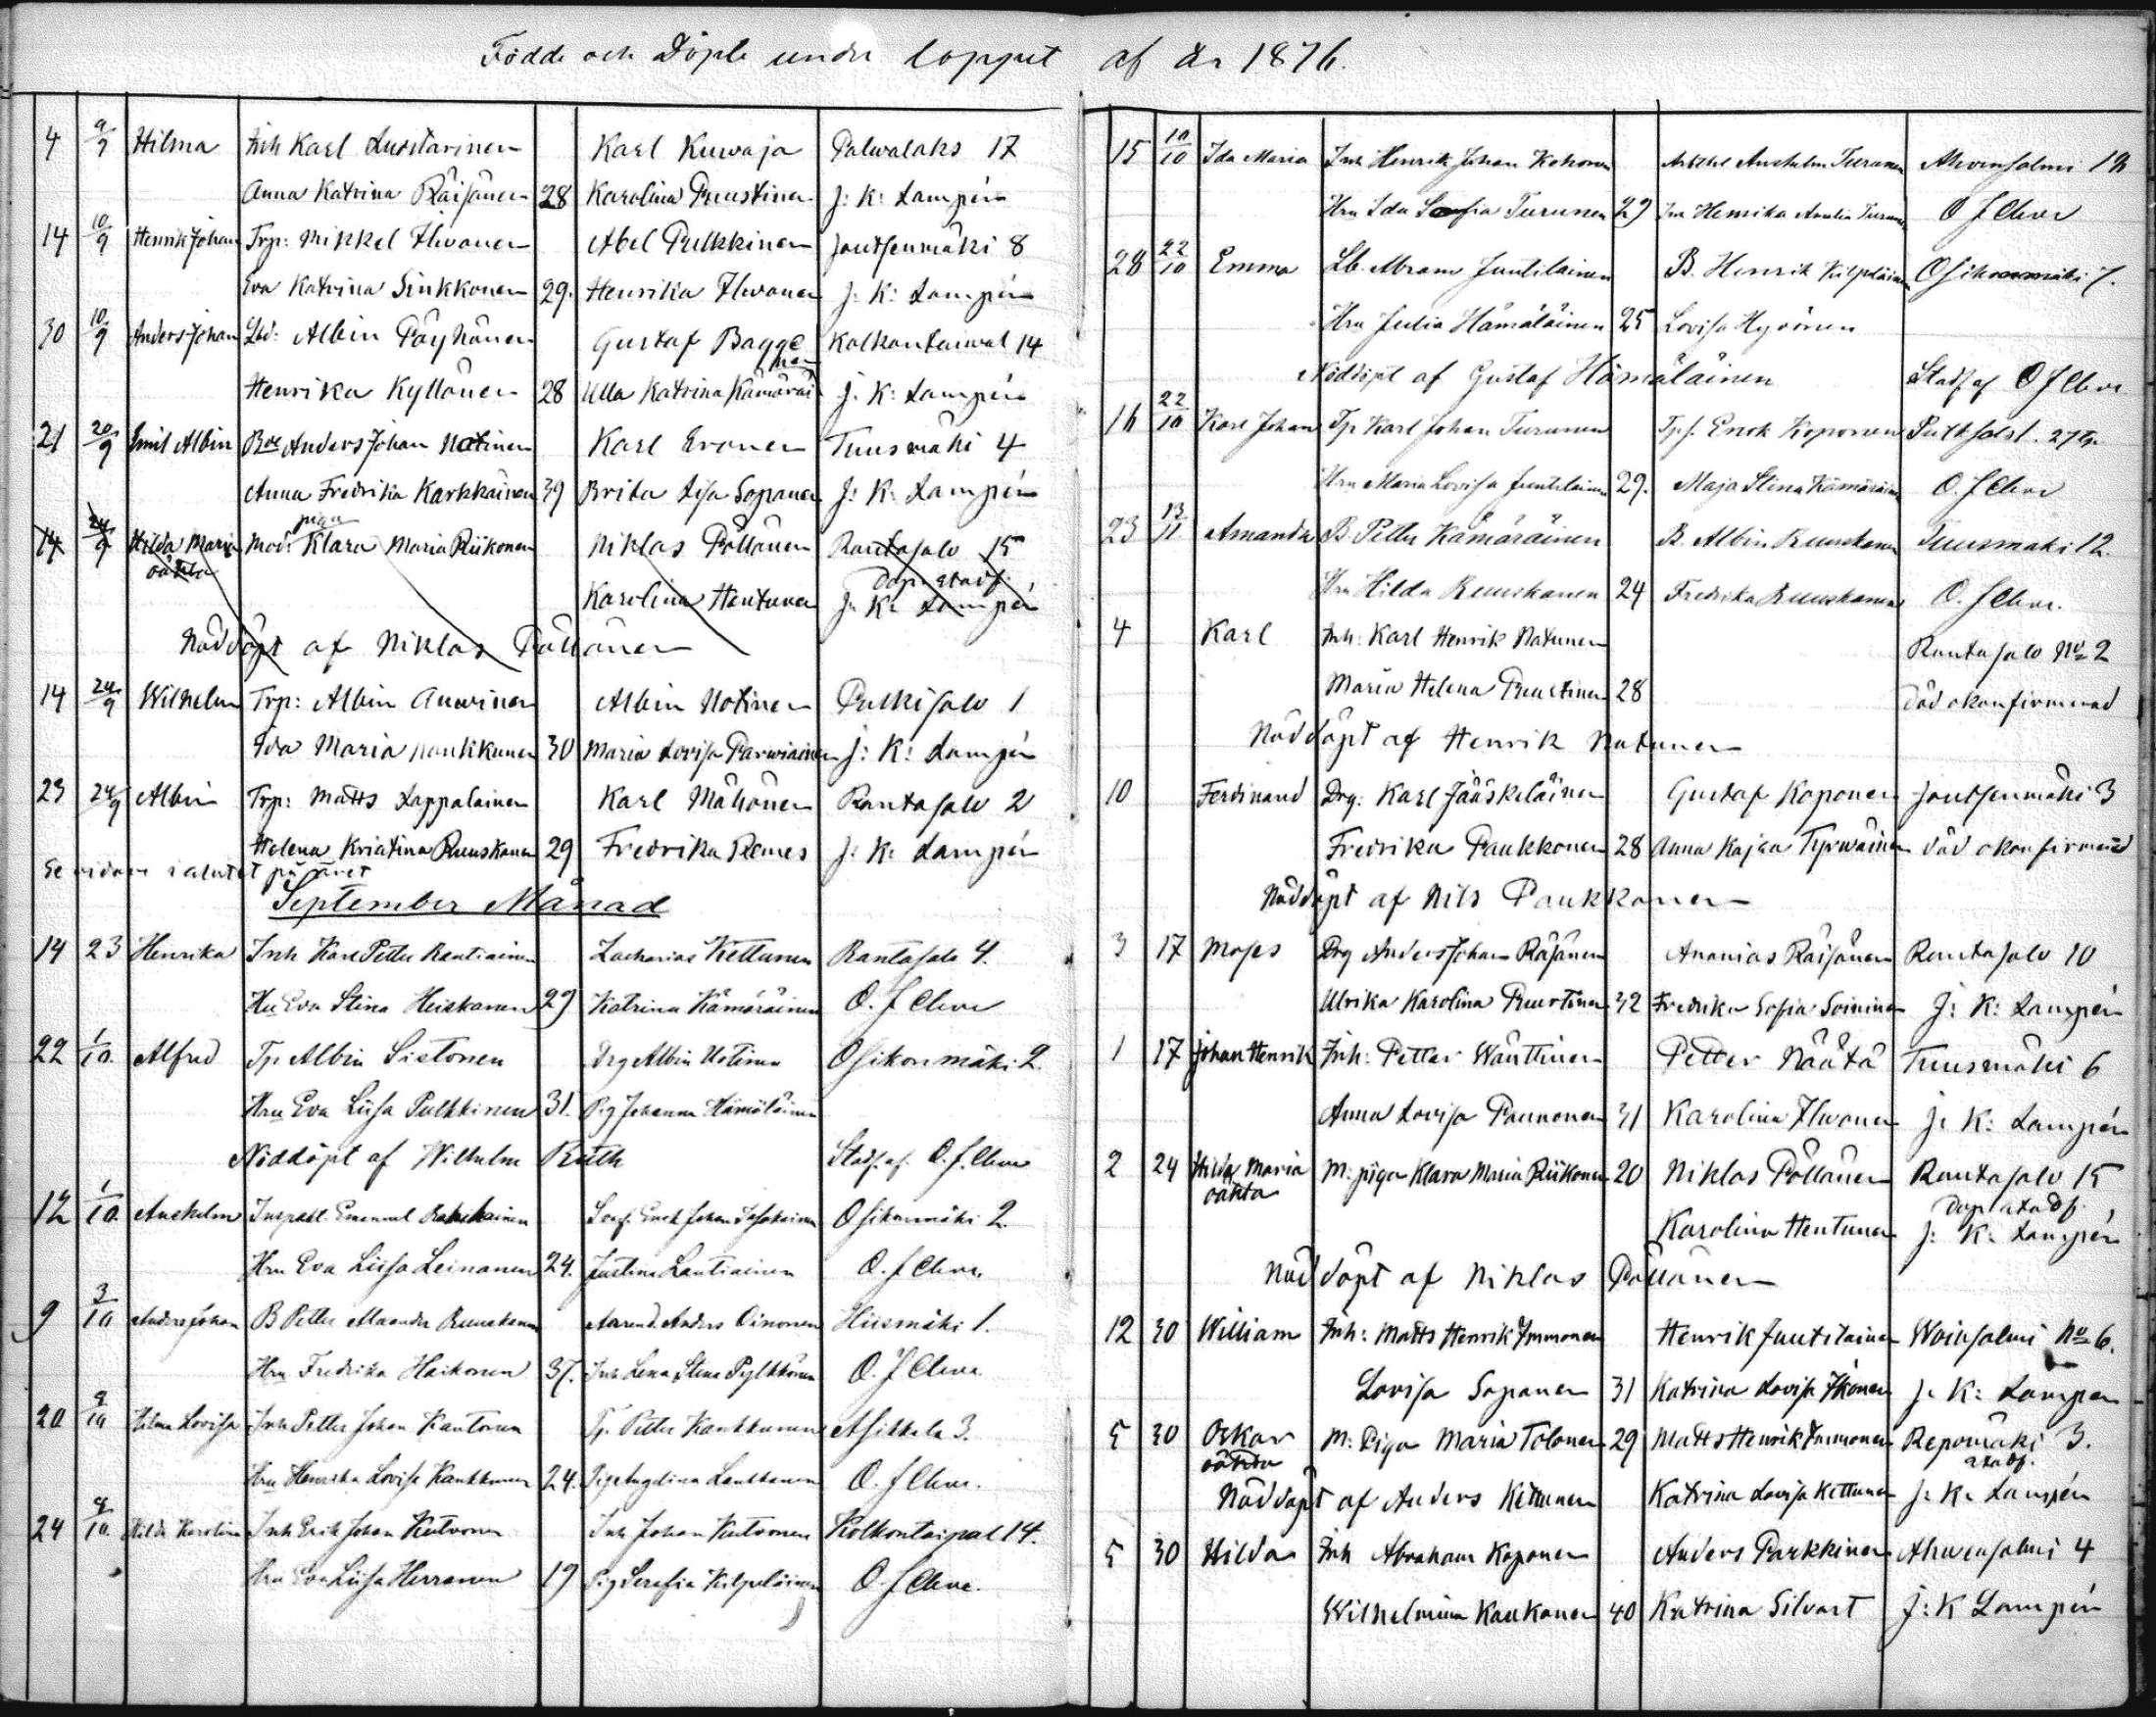 Födde och Döpte under loppet af år 1876.
4 9/9 Hilma Inh Karl Luostarinen Karl Kuwaja Palwalaks 17
Anna Katrina Räisänen 28 Karolina Puustinen J: K: Lampén
14 10/9 Henrik Johan Trp: Mikkel Ihvonen Abel Pulkkinen Joutsenmäki 8
Eva Katrina Sinkkonen 29. Henrika Ihvonen J: K: Lampén
30 10/9 Anders Johan Lbd: Albin Pöyhönen Gustaf Bagge Kolkontaiwal 14
Henrika Kyllönen 28 Ulla Katrina Kämäräinen J. K: Lampén
21 20/9 Emil Albin Bde Anders Johan Notinen Karl Eronen Tuusmäki 4
Anna Fredrika Karkkainen 39 Brita Lisa Sopanen J: K: Lampén
14 24/9 Hilda Maria oäkta Mod: pigan Klara Maria Riikonen Niklas Pöllänen Rantasalo 15
Karolina Hentunen Dop. stadf. J: K: Lampén
Nöddöpt af Niklas Pöllänen
14 24/9 Wilhelm Trp: Albin Auwinen Albin Notinen Pulkisalo 1
Ida Maria Kaukkunen 30 Maria Lovisa Parwiainen J: K: Lampén
23 24/9 Albin Trp: Matts Lappalainen Karl Mällönen Rantasalo 2
Helena Kristina Ruuskanen 29 Fredrika Remes J: K: Lampén
Se vidare i slutet på året
September Månad
14 23 Henrika Inh Karl Petter Rautiainen Zacharias Kettunen Rantasalo 4.
Hu Eva Stina Heiskanen 29 Katrina Kämäräinen O. J Cleve
22 1/10. Alfred Tp Albin Sistonen Drg Albin Notinen Osikonmäki 2.
Hru Eva Liisa Pulkkinen 31. Pig Johanna Hämäläinen
Nöddöpt af Wilhelm Ruth Stadf. af. O. J. Cleve
12 1/10 Anshelm Emanuel Osikonmäki 2.
Hru Eva Liisa Leinanen 24. Justina Lautiainen O. J Cleve.
9 3/10 Anders Johan B Petter Ruuskanen Anders Oinonen Hiismäki 1.
Hru Fredrika Haikonen 37. Inh Lena Stina Pylkkänen O. J Cleve
20 8/10 Hilma Lovisa Inh Petter Johan Kantonen Tp. Petter Kaukkunen Asikkala 3.
Hru Henrika Lovisa Kaukkunen 24. O. J Cleve.
24 8/10. Hilda Karolina Inh Erik Johan Kutvonen Inh Johan Kutvonen Kolkontaipal 14.
Hru Eva Liisa Herranen 19 Pig Serafia Kilpeläinen O. J Cleve.
15 10/10 Ida Maria Inh Henrik Johan Kokonen Anshelm Turunen Ahvensalmi 12
Hru Ida Sofia Turunen 29 Henrika Amalia Turunen O J Cleve
28 22/10 Emma Lb. Abram Juutilainen B. Henrik Kilpeläinen Osikonmäki 7.
Hru Julia Hämäläinen 25 Lovisa Hyvönen
Nöddöpt af Gustaf Hämäläinen Stadf af O J Cleve
16 22/10 Karl Johan Tp Karl Johan Turunen Erick Koponen
Hru Maria Lovisa Juutilainen 29. Maja Stina Kämäräinen O. J Cleve
23 13/11. Amanda B. Petter Kämäräinen B. Albin Ruuskanen Tuusmäki 12.
Hru Hilda Ruuskanen 24 Fredrika Ruuskanen O. J Cleve.
4 Karl Inh: Karl Henrik Natunen Rantasalo No 2
Maria Helena Puustinen 28 död okonfirmerad
Nöddöpt af Henrik Natunen
10 Ferdinand Drg: Karl Jääskeläinen Gustaf Koponen Joutsenmäki 3
Fredrika Paukkonen 28 Anna Kajsa Tyrwäinen död okonfirmerad
Nöddöpt af Nils Paukkonen
3 17 Moses Drg Anders Johan Räsänen Ananias Räisänen Rantasalo 10
Ulrika Karolina Puustinen 32 Fredrika Sofia Soininen J: K: Lampén
1 17 Johan Henrik Inh: Petter Wänttinen Petter Näätä Tuusmäki 6
Anna Lovisa Paunonen 31 Karolina Ihvonen J: K: Lampén
2 24 Hilda Maria oäkta M: pigan Klara Maria Riikonen 20 Niklas Pöllänen Rantasalo 15
Karolina Hentunen Dop stadf. J: K: Lampén
Nöddöpt af Niklas Pöllänen
12 30 William Inh: Matts Henrik Immonen Henrik Juutilainen Woinsalmi No 6.
Lovisa Sopanen 31 Katrina Lovisa Ikonen J: K: Lampén
5 30 Oskar oäkta M: Pigan Maria Tolonen 29 Matts Henrik Immonen Repomäki 3.
Nöddöpt af Anders Kettunen Katrina Lovisa Kettunen stadf. J: K: Lampén
5 30 Hilda Inh Abraham Koponen Anders Parkkinen Ahwensalmi 4
Wilhelmina Kaukonen 40 Katrina Silvast J: K Lampén